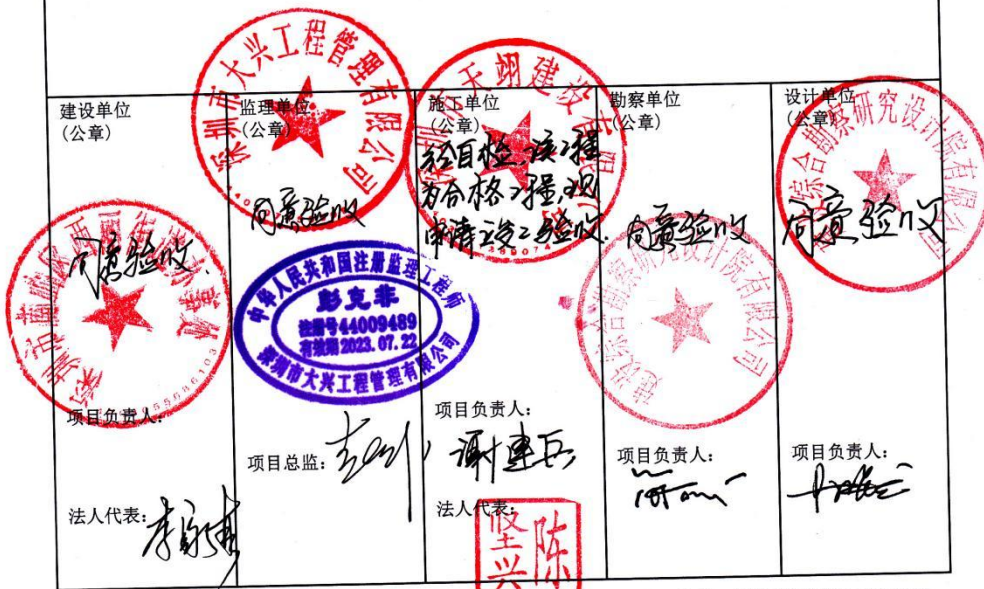 建设单位
(公章)
同意验收.
项目负责人:
法人代表:
监理单位
(公章)
深圳市大兴工程管理有限公司
同意验收
中华人民共和国注册监理工程师
彭克非
注册号44009489
有效期2023.07.22
深圳市大兴工程管理有限公司
项目总监:
施工单位
(公章)
天翊建设
经自检,该工程
为合格工程,现
申请竣工验收.
项目负责人:
谢建兵
法人代表:
陈
坚兴
勘察单位
(公章)
同意验收
建设综合勘察研究设计院有限公司
项目负责人:
设计单位
(公章)
综合勘察研究设计院有限公司
同意验收
项目负责人: